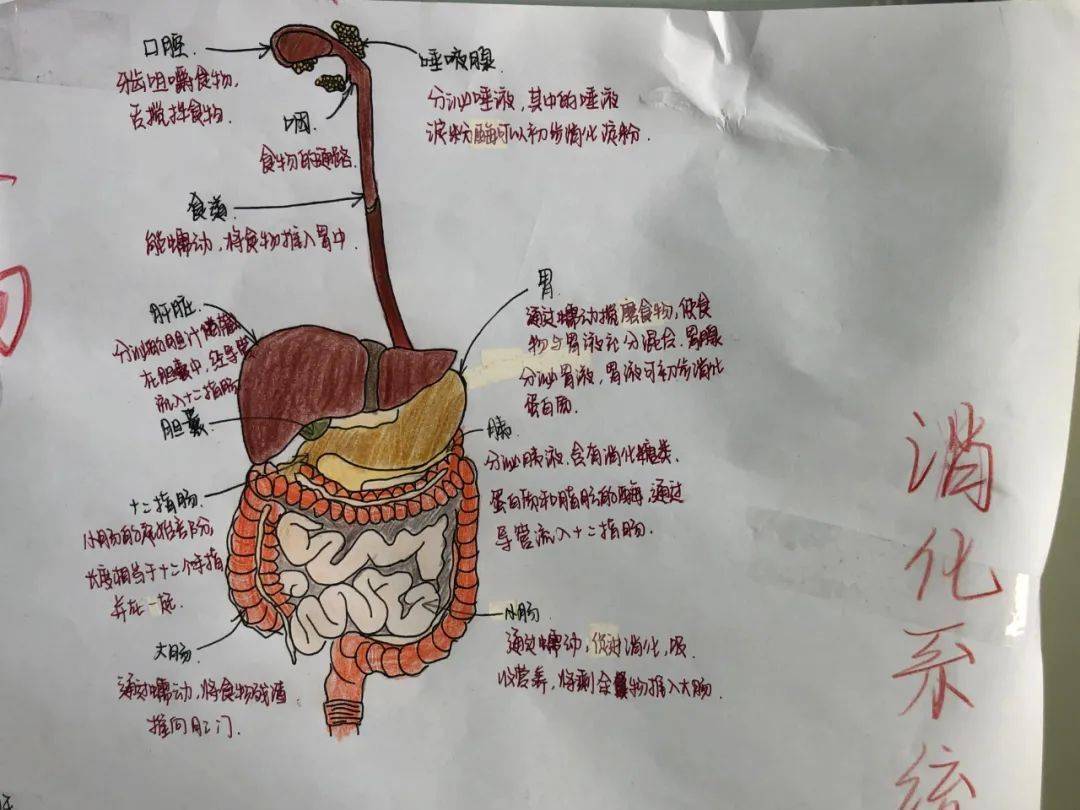 口腔.
牙齿咀嚼食物,
舌搅拌食物.
唾液腺
分泌唾液,其中的唾液
淀粉酶可以初步消化淀粉.
咽.
食物的通路.
食道.
能蠕动,将食物推入胃中.
肝脏.
分泌的胆汁储藏
在胆囊中,经导管
流入十二指肠
胆囊
胃.
通过蠕动搅磨食物,使食
物与胃液充分混合.胃腺
分泌胃液,胃液可初步消化
蛋白质.
胰
分泌胰液.含有消化糖类.
蛋白质和脂肪的酶.通过
导管流入十二指肠.
十二指肠.
小肠的起始部分,
长度相当于十二个手指
并在一起.
大肠.
通过蠕动,将食物残渣
推向肛门.
小肠
通过蠕动,促进消化,吸
收营养,将剩余食物推入大肠.
消化系统